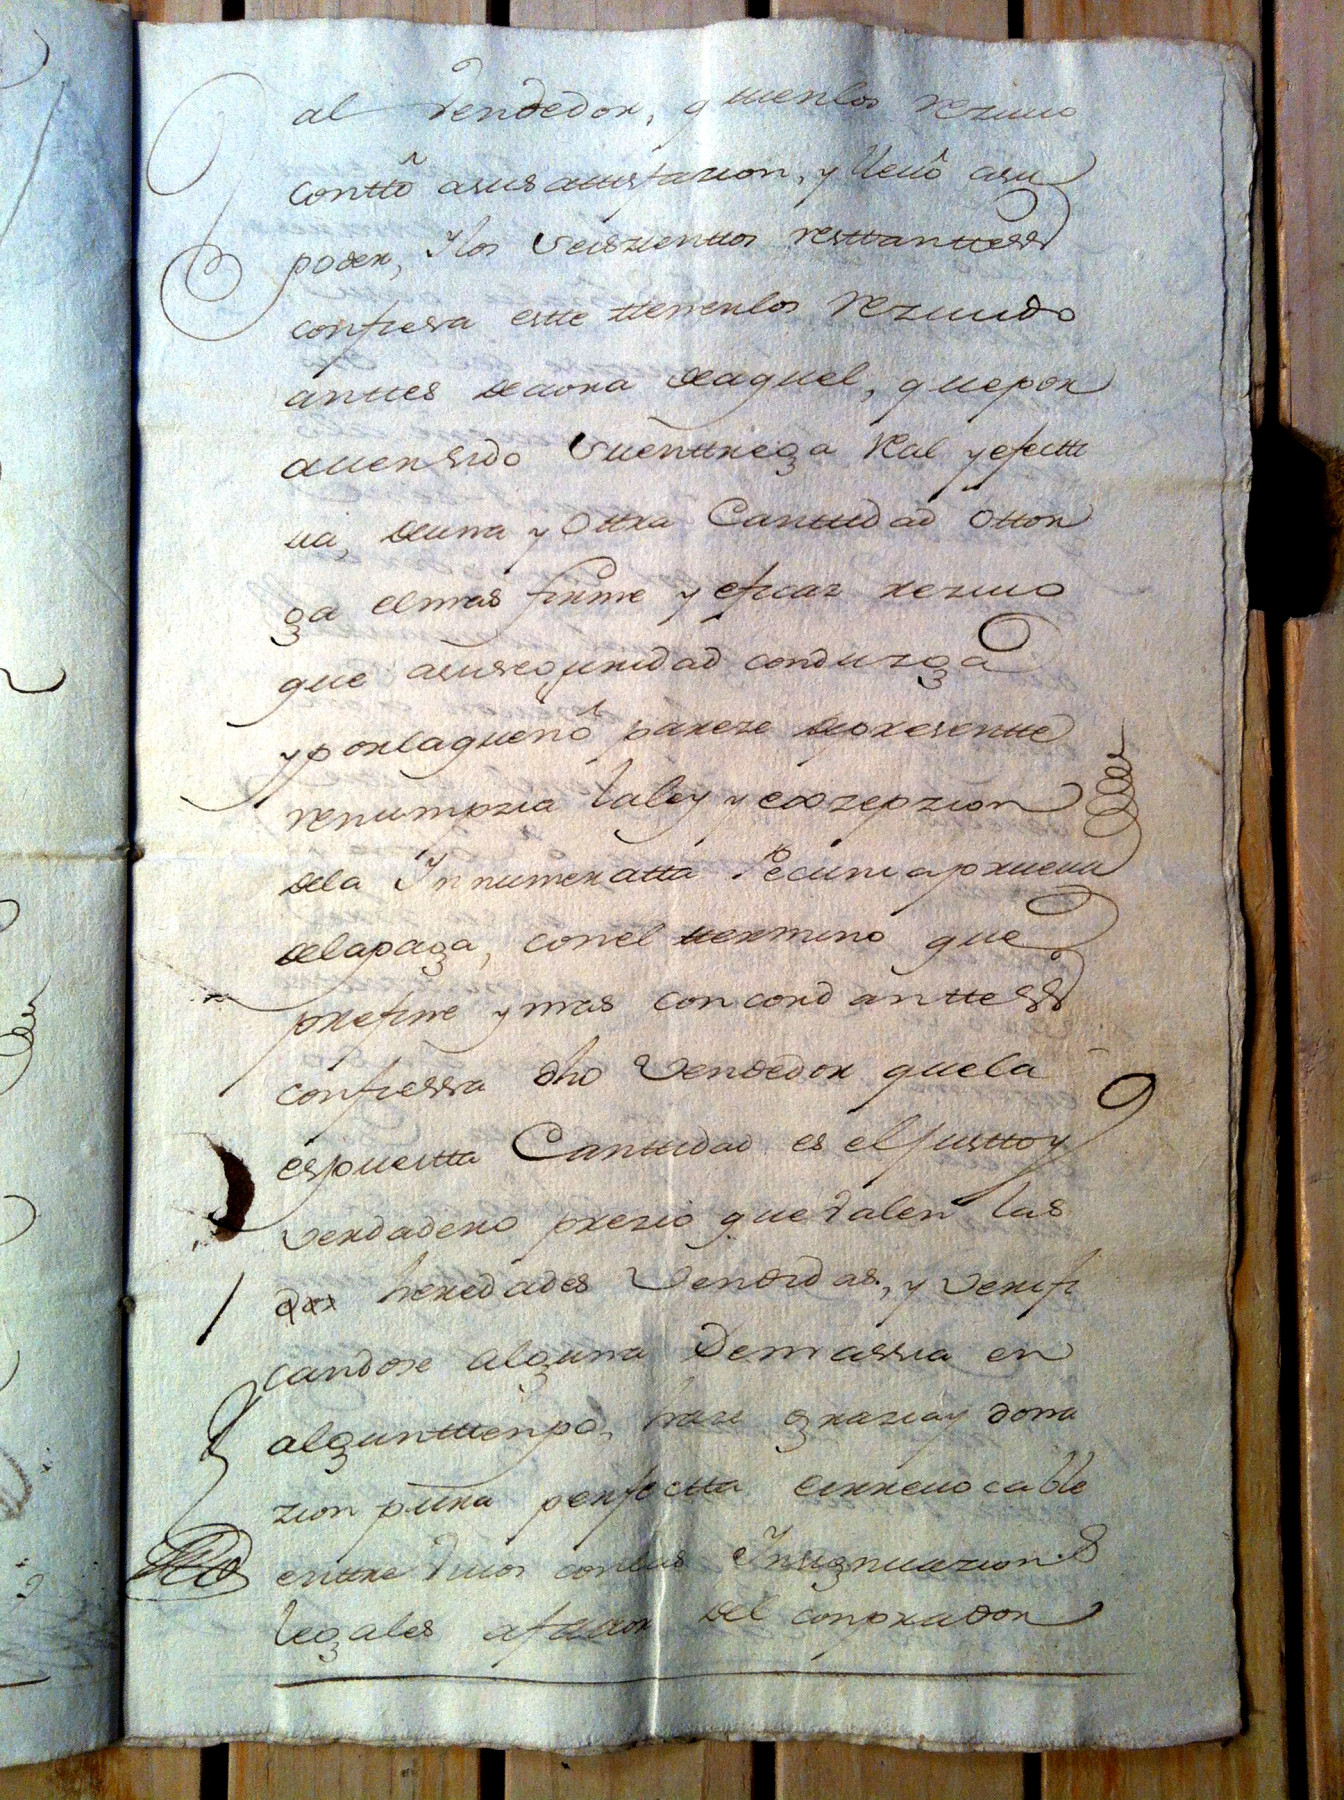 al vendedor, quienlos rezivio
conttô asusattisfazion, y llevô asu
poder, Ylos Seiszienttos resttanttess
confiesa estte ttenerlos rezivido
anttes deaora deaquel, quepor
aversido Suenttrega Real yefectti
va, deuna y Ottra Canttidad Ottor
ga elmas firme y eficaz rezivo
que asuseguridad conduzga
yporlaquenô pareze depresentte
renumpzia laley y exzepzion
dela Innumeratta Pecunia prueva
delapaga, conel ttermino que
prefine ymas concordanttess
confiessa dho Vendedor quela
espuestta Canttidad es el justto y
verdadero prezio quevalen las
dos heredades Vendidas, y verifi
candose alguna Demassia en
algunttienpo, haze graziay dona
zion pura perfectta eirrevocable
enttre vivos conlas Insignuazions
legales afavor del conprador